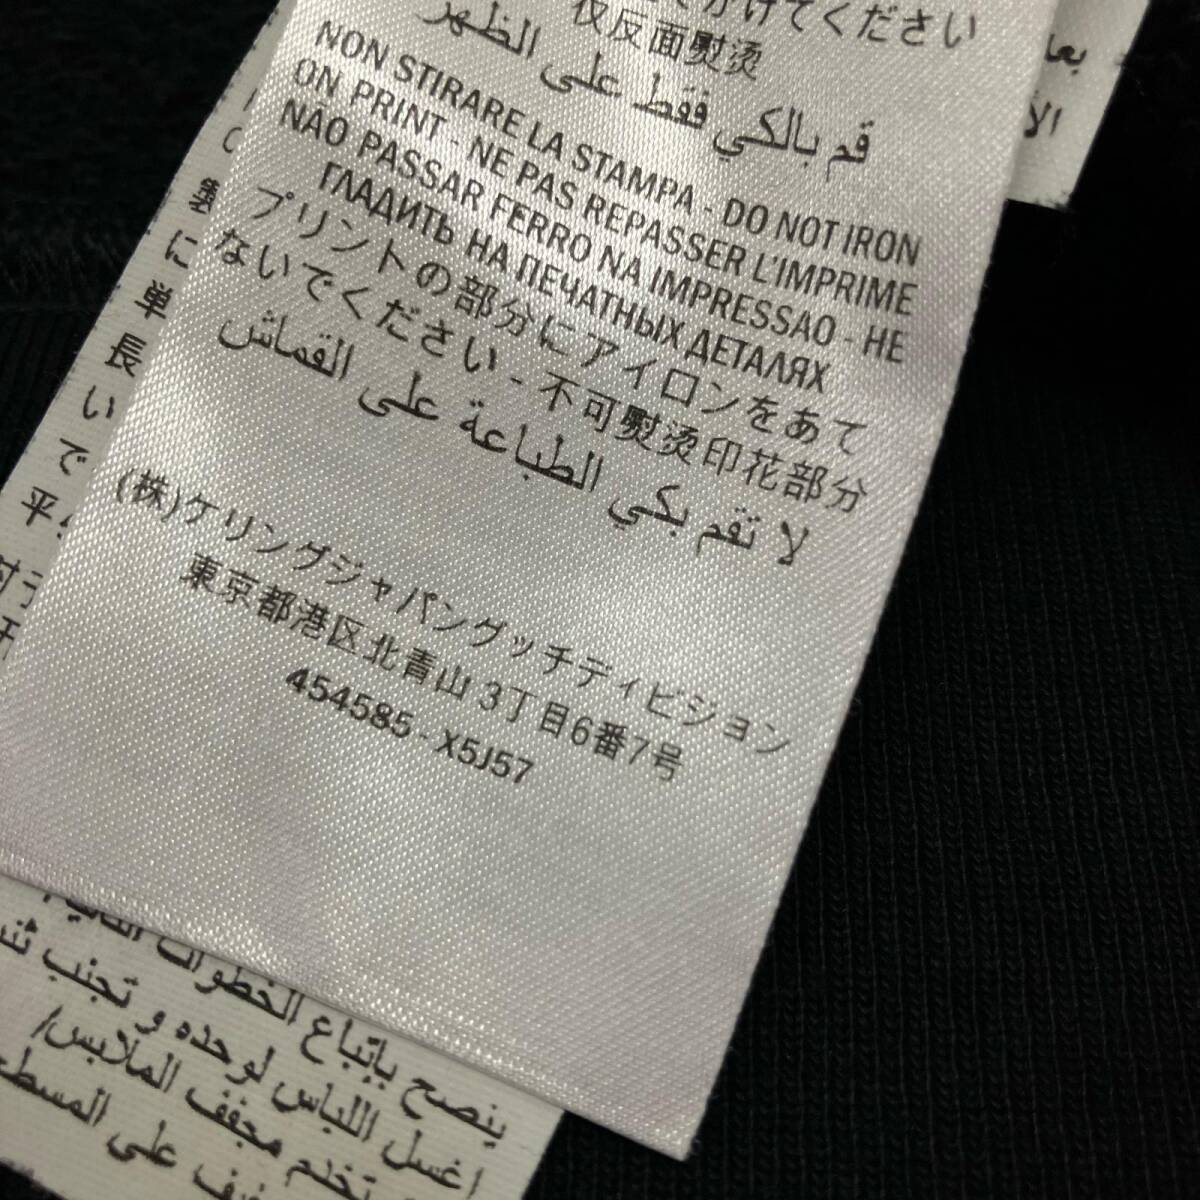 かけてください
仅反面熨烫
قم بالكي فقط على الظهر
NON STIRARE LA STAMPA - DO NOT IRON
ON PRINT - NE PAS REPASSER L'IMPRIME
NÃO PASSAR FERRO NA IMPRESSAO - НЕ
ГЛАДИТЬ НА ПЕЧАТНЫХ ДЕТАЛЯХ
プリントの部分にアイロンをあて
ないでください - 不可熨烫印花部分
لا تقم بكي الطباعة على القماش
(株)ケリングジャパングッチディビジョン
東京都港区北青山 3丁目6番7号
454585 - X5J57
に
単
長
い
で
平
ينصح بإتباع الخطوات التالية
اغسل اللباس لوحده و تجنب
تخدم مجفف الملابس/
على المسطح